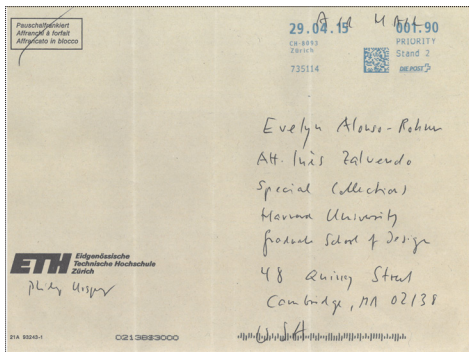 Pauschalfrankiert
Affranchi à forfait
Affrancato in blocco
AIR MAIL
29.04.15
001.90
CH-8093
Zürich
PRIORITY
Stand 2
735114
DIE POST
Evelyn Alonso-Rohner
Att. Inés Zalduendo
Special Collections
Harvard University
Graduate School of Design
48 Quincy Street
Cambridge, MA 02138
USA
ETH
Eidgenössische
Technische Hochschule
Zürich
21A 93243-1